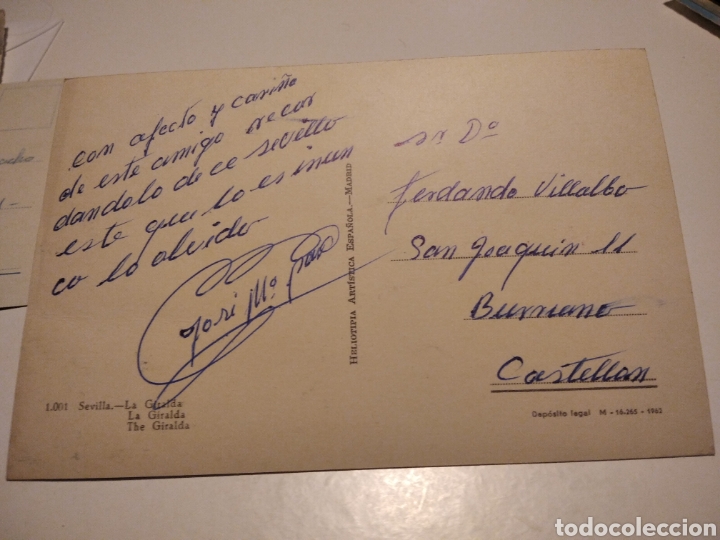 con afecto y cariño
de este amigo recor
dandolo de ce Sevillo
este que lo es inun
ca lo olvido
Jose Mª
Sr. Dº
Ferdando Villalbo
San Joaquin 11
Burriano
Castellon
HELIOTIPIA ARTÍSTICA ESPAÑOLA.—MADRID
1.001 Sevilla.—La Giralda
La Giralda
The Giralda
Depósito legal M - 16.265 - 1963
todocoleccion